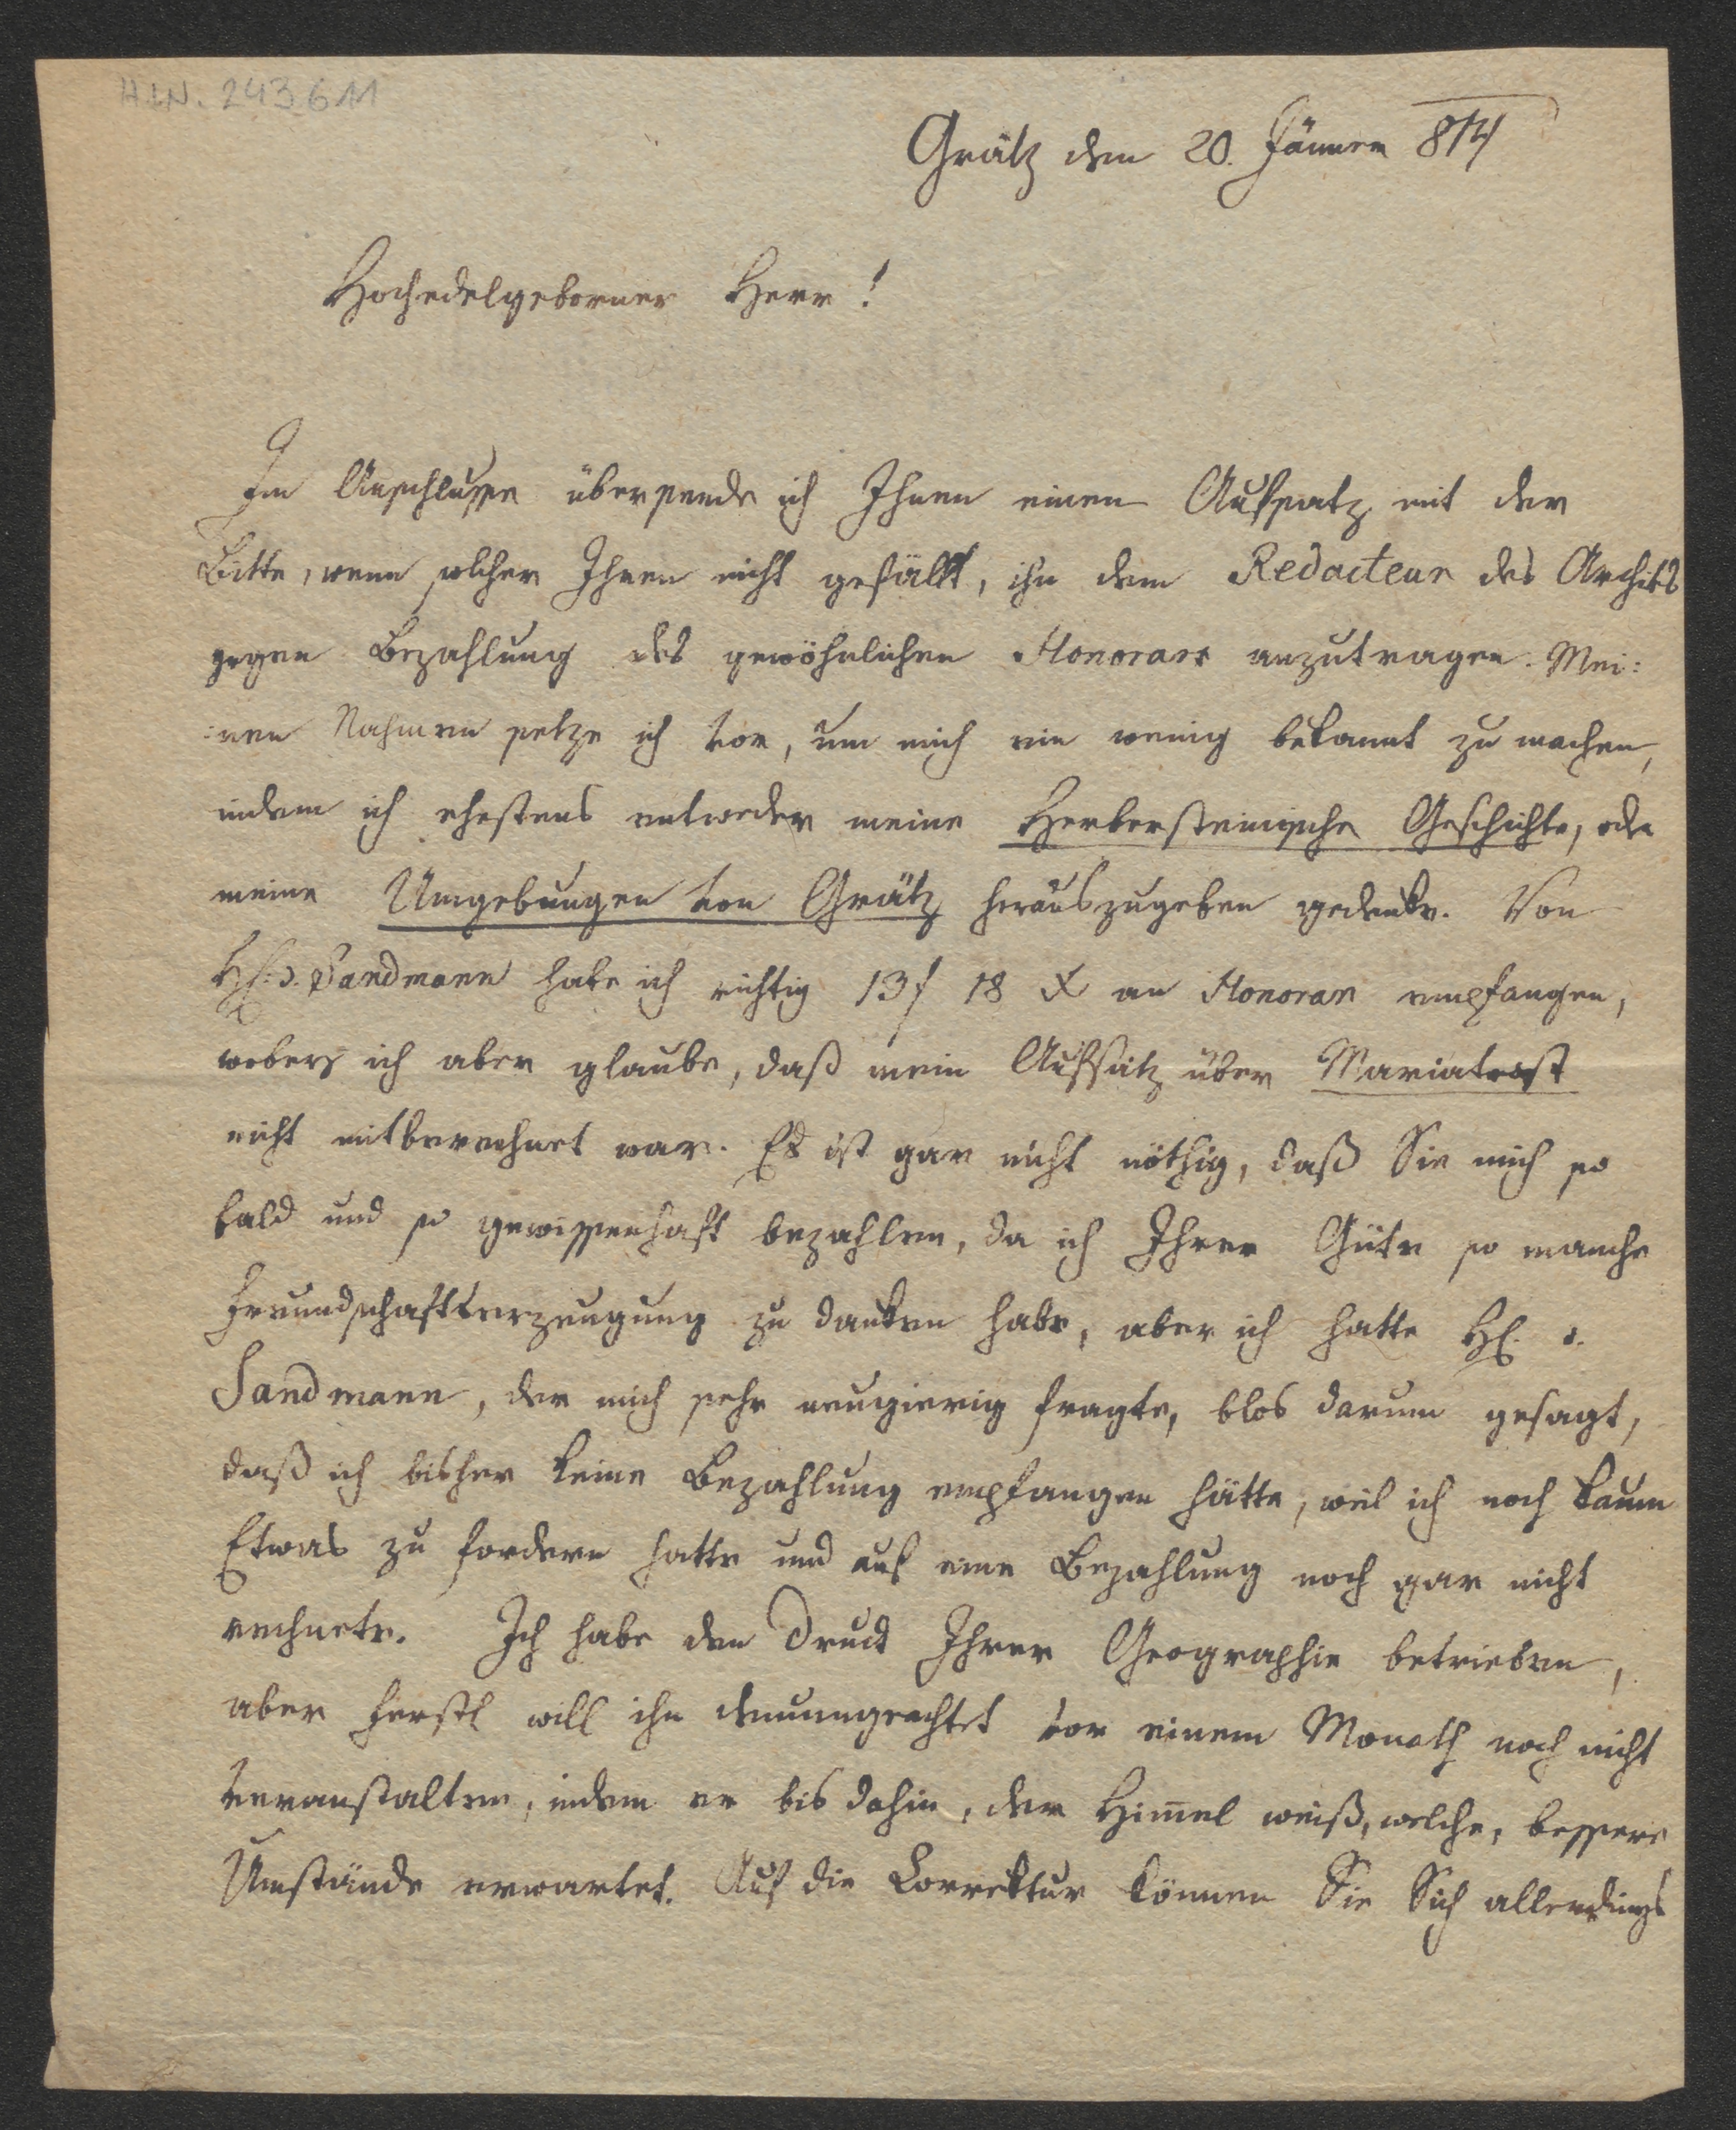 H.I.N. 243611
Grätz den 20. Jänner 814
Hochedelgeborner Herr!
Im Anschlusse übersende ich Ihnen einen Aufsatz mit der
Bitte, wenn solcher Ihnen nicht gefällt, ihn dem Redacteur des Archivs
gegen Bezahlung des gewöhnlichen Honorars anzutragen. Mei:
:nen Nahmen setze ich vor, um mich ein wenig bekannt zu machen,
indem ich ehestens entweder meine Herbersteinische Geschichte, oder
meine Umgebungen von Grätz herauszugeben gedenke. Von
H: v. Sandmann habe ich richtig 13 f 18 x an Honorar empfangen,
wobey ich aber glaube, daß mein Aufsatz über Mariatrost
nicht mitberechnet war. Es ist gar nicht nöthig, daß Sie mich so
bald und so gewissenhaft bezahlen, da ich Ihrer Güte so manche
Freundschaftserzeugung zu danken habe, aber ich hatte H. v.
Sandmann, der mich sehr neugierig fragte, blos darum gesagt,
daß ich bisher keine Bezahlung empfangen hätte, weil ich noch kaum
Etwas zu fordern hatte und auf eine Bezahlung noch gar nicht
rechnete. Ich habe den Druck Ihrer Geographie betrieben,
aber Ferstl will ihn demungeachtet vor einem Monath noch nicht
veranstalten, indem er bis dahin, der Himel weiß, welche, bessere
Umstände erwartet. Auf die Correktur können Sie Sich allerdings